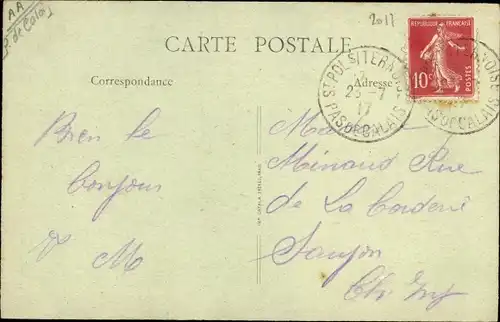 AA
P. de Cal
2017
CARTE POSTALE
Correspondance
Adresse
REPUBLIQUE FRANÇAISE
10c
POSTES
ST POL S/TERNOISE
23-7
17
PAS DE CALAIS
Bien le
bonjour
M
Minaud Rue
de La Corderie
Saujon
Ch Inf